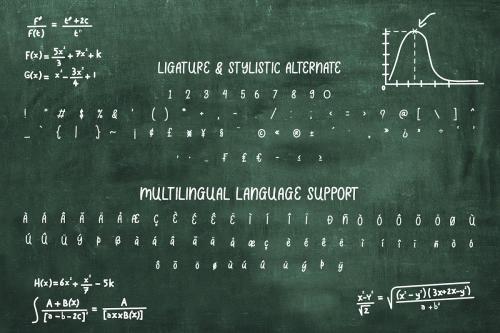 F° = t°+2c
F(t) t°
F(x)= 5x²/3 + 7x² + k
G(x)= x² - 3x²/4 + 1
LIGATURE & STYLISTIC ALTERNATE
1 2 3 4 5 6 7 8 9 0
! " # $ % & ' ( ) * + , - . / : ; < = > ? @ [ \ ] ^
_ ` { | } ~ ¡ ¢ £ ¤ ¥ § ¨ © « ® ±
F £ € - ≤ ≥
MULTILINGUAL LANGUAGE SUPPORT
À Á Â Ã Ä Å Æ Ç È É Ê Ë Ì Í Î Ï Ð Ñ Ò Ó Ô Õ Ö Ø Ù
Ú Û Ü Ý Þ ß à á â ã ä å æ ç è é ê ë ì í î ï ñ ò ó
ô õ ö ø ù ú û ü ý þ ÿ
H(x)=6x² + x²/7 - 5k
∫ A+B(x)/[a-b-2c]² = A/[axxB(x)]
x²-y²/√2 = √(x²-y²)(3x+2x-y²)/a+b²
0